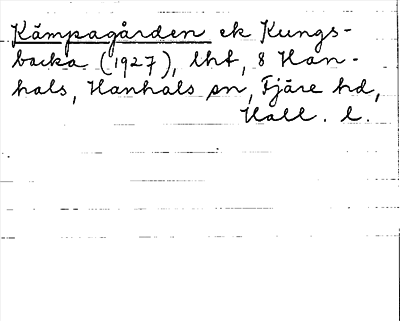 Kämpagården ek Kungs-
backa (1927), lht, 8 Han-
hals, Hanhals sn, Fjäre hd,
Hall. l.